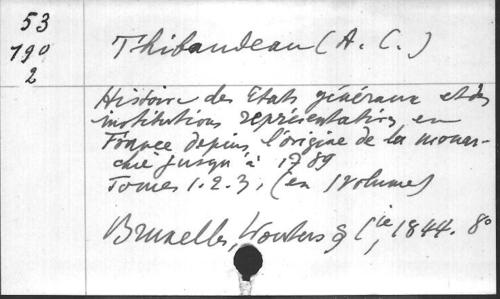 53
790
2
Thibaudeau (A. C.)
Histoire des Etats généraux et des
institutions représentatives en
France depuis l'origine de la monar-
chie jusqu'à 1789
Tomes 1. 2. 3, (en 1 volume)
Bruxelles, Wouters & Cie, 1844. 8°